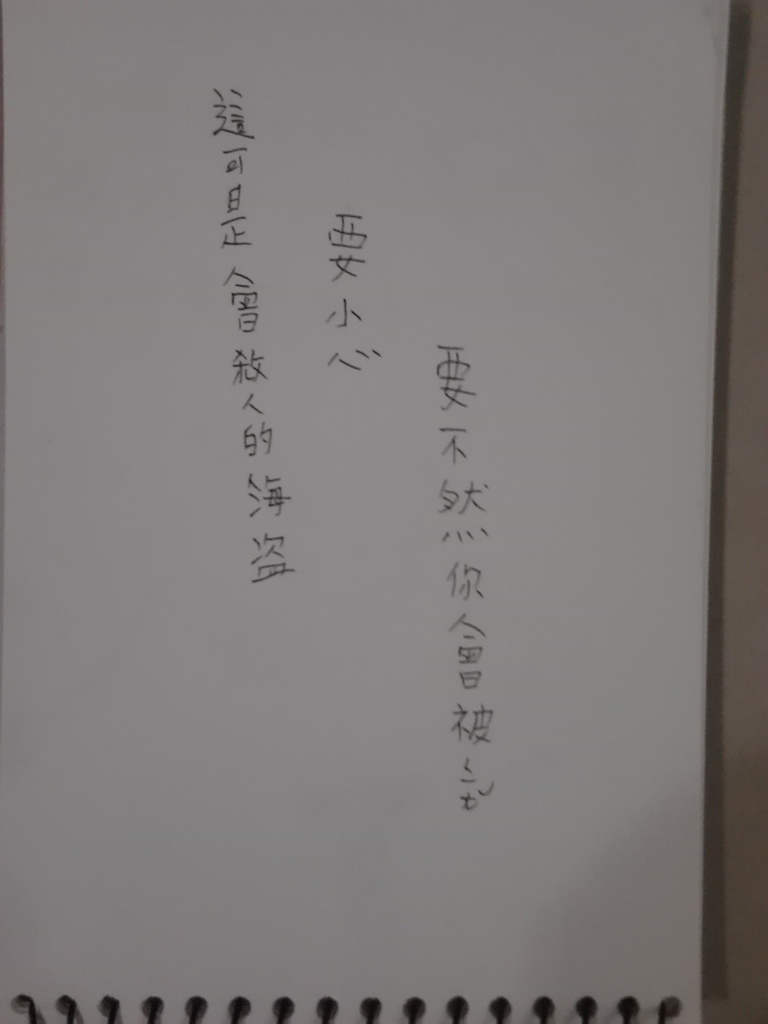 這可是會殺人的海盜
要小心
要不然你會被